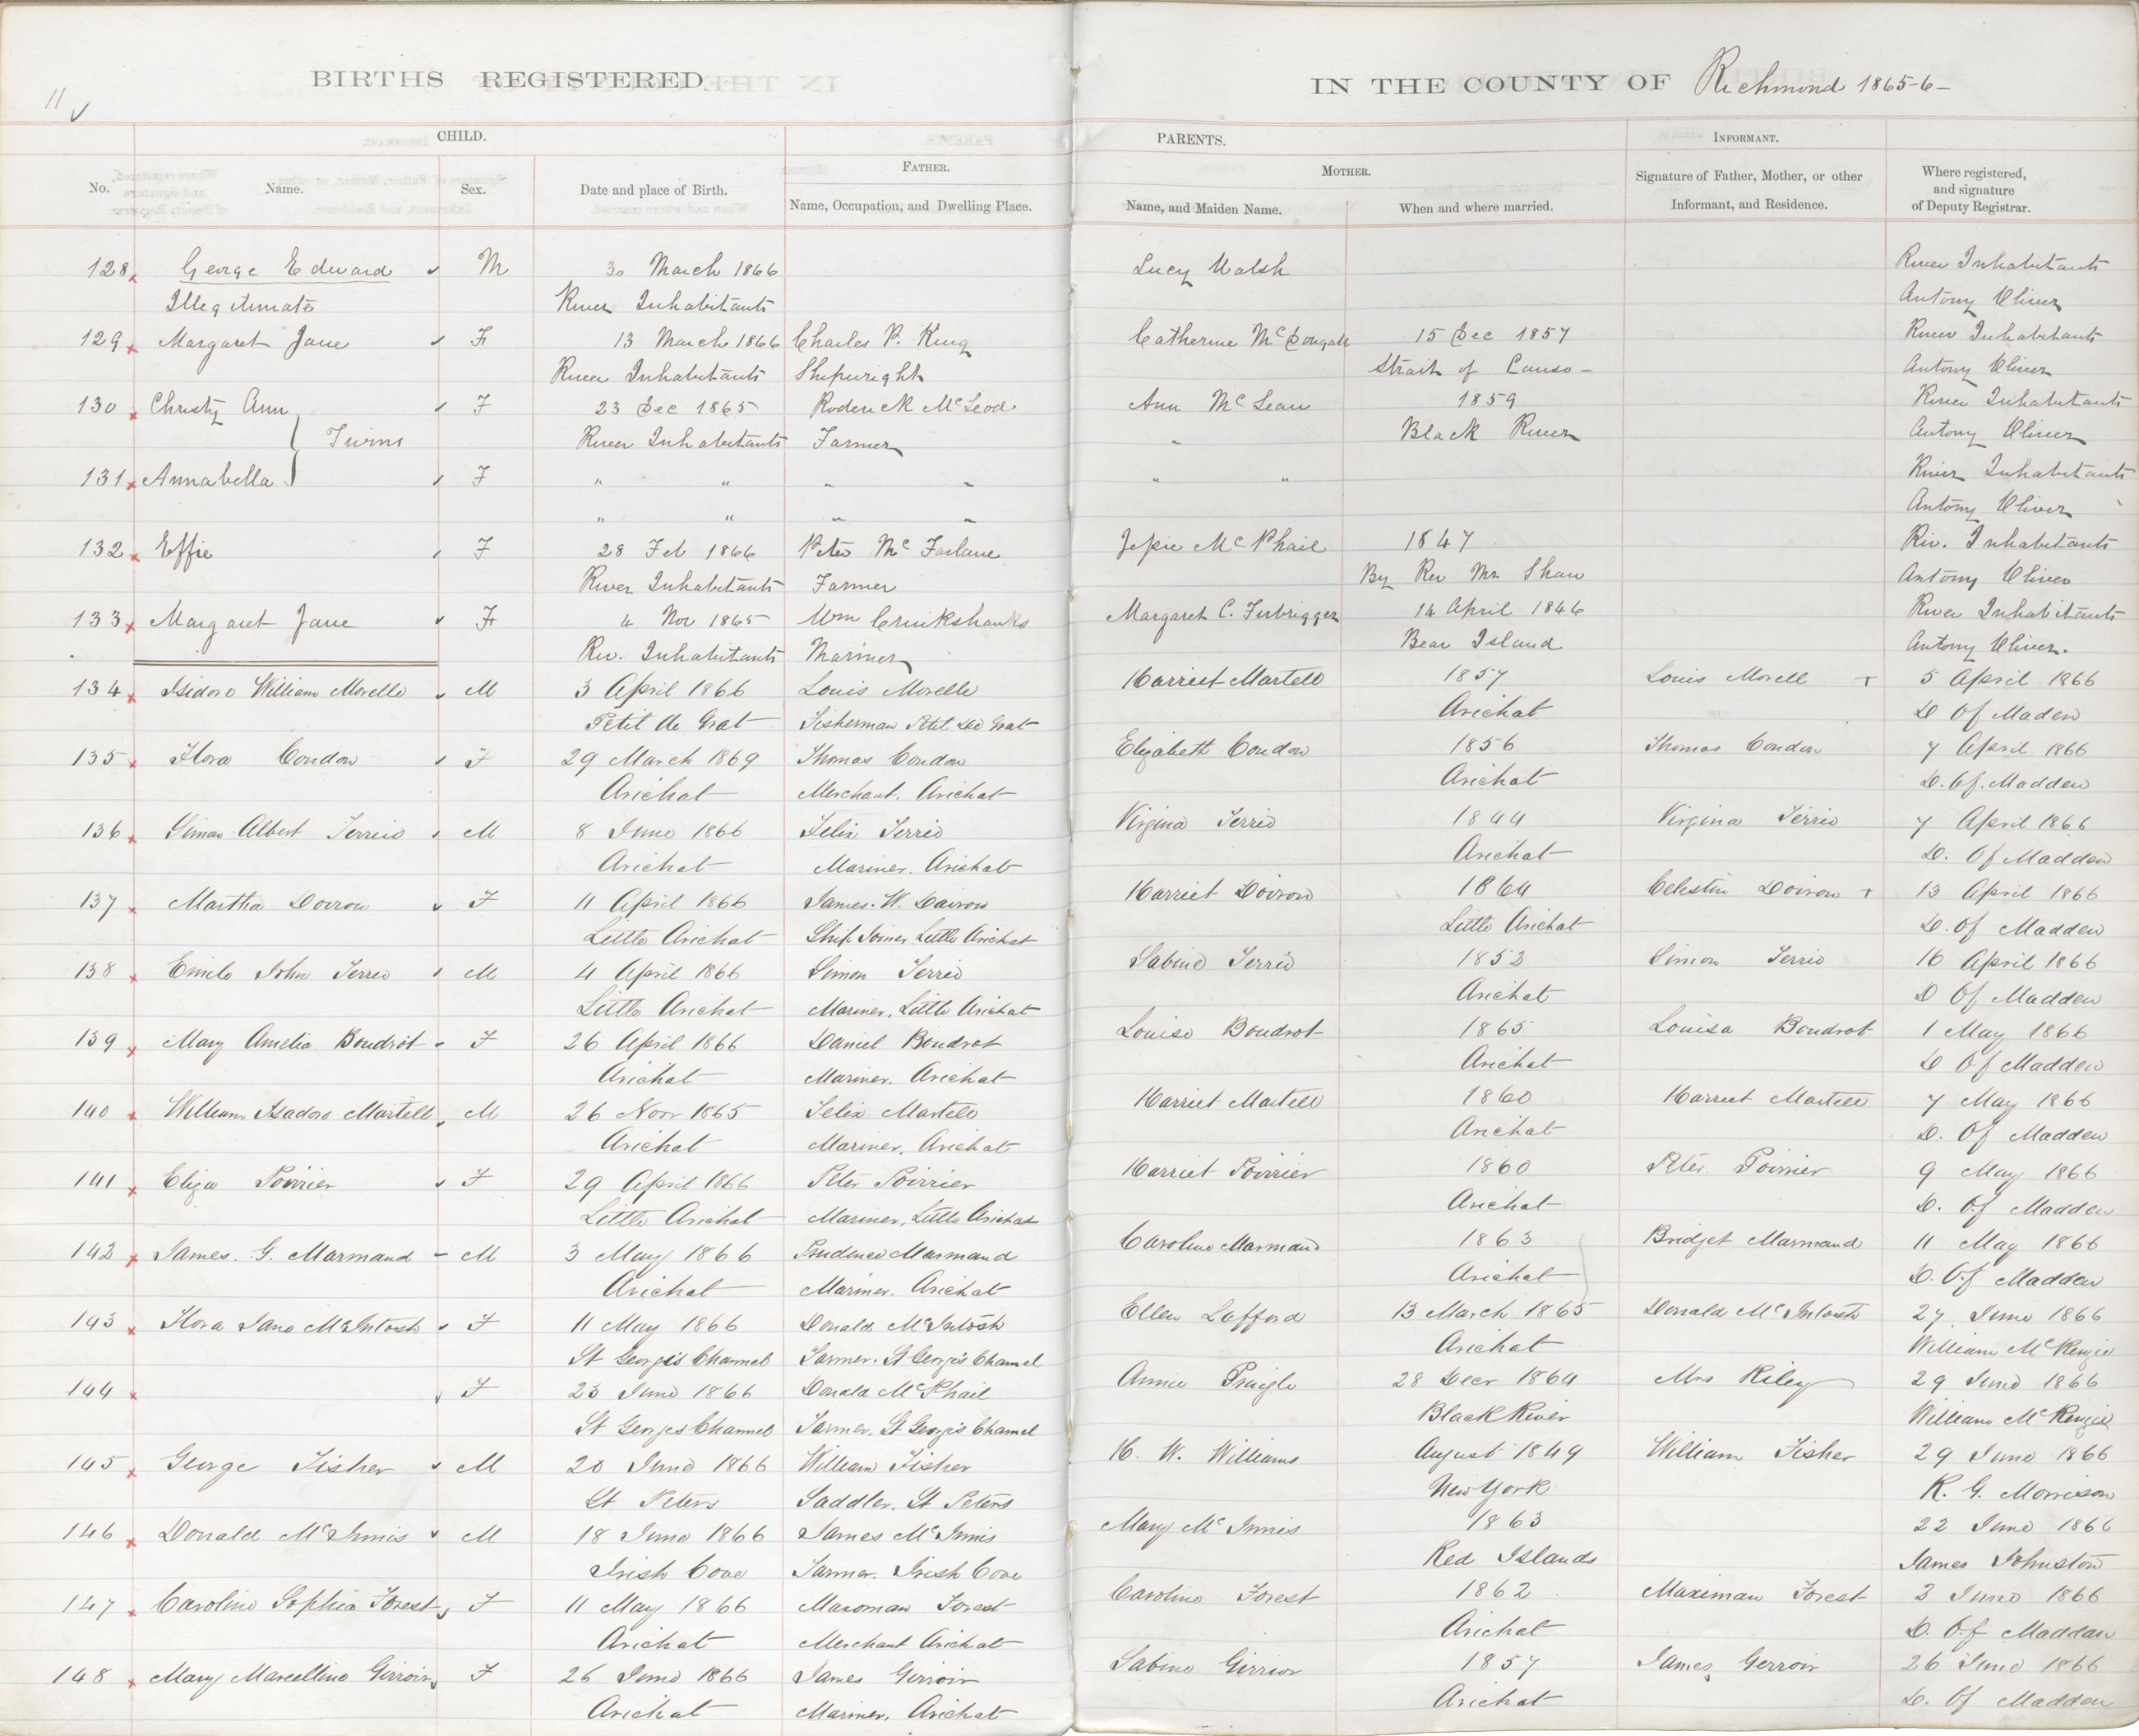 BIRTHS REGISTERED IN THE COUNTY OF Richmond 1865-6-
11
CHILD. PARENTS. INFORMANT.
FATHER. MOTHER.
No. Name. Sex. Date and place of Birth. Name, Occupation, and Dwelling Place. Name, and Maiden Name. When and where married. Signature of Father, Mother, or other Informant, and Residence. Where registered, and signature of Deputy Registrar.
128 George Edward M 30 March 1866 Lucy Walsh River Inhabitants
Illegitimate River Inhabitants Antony Oliver
129 Margaret Jane F 13 March 1866 Charles P. King Catherine McDougall 15 Dec 1857 River Inhabitants
River Inhabitants Shipwright Strait of Canso - Antony Oliver
130 Christy Ann F 23 Dec 1865 Roderick McLeod Ann McLean 1859 River Inhabitants
Twins River Inhabitants Farmer " Black River Antony Oliver
131 Annabella F " " " " " " River Inhabitants
" " " " Antony Oliver
132 Effie F 28 Feb 1866 Peter McFarlane Jessie McPhail 1847 Riv. Inhabitants
River Inhabitants Farmer By Rev Mr Shaw Antony Oliver
133 Margaret Jane F 4 Nov 1865 Wm Cruikshanks Margaret C. Furbrigger 14 April 1846 River Inhabitants
Riv. Inhabitants Mariner Bear Island Antony Oliver.
134 Isidore William Morelle M 3 April 1866 Louis Morelle Harriet Martell 1857 Louis Morell + 5 April 1866
Petit de Grat Fisherman Petit De Grat Arichat D Of Maden
135 Flora Condon F 29 March 1869 Thomas Condon Elizabeth Condon 1856 Thomas Condon 7 April 1866
Arichat Merchant. Arichat Arichat D. Of. Madden
136 Simon Albert Terrio M 8 June 1866 Felix Terrio Virginia Terrio 1844 Virginia Terrio 7 April 1866
Arichat Mariner. Arichat Arichat D. Of Madden
137 Martha Doiron F 11 April 1866 James. W. Dairon Harriet Doiron 1864 Celestin Doiron + 13 April 1866
Little Arichat Ship Joiner Little Arichat Little Arichat D. Of Madden
138 Emile John Terrio M 4 April 1866 Simon Terrio Sabine Terrio 1853 Simon Terrio 16 April 1866
Little Arichat Mariner. Little Arichat Arichat D Of Madden
139 Mary Amelia Boudrot F 26 April 1866 Daniel Boudrot Louise Boudrot 1865 Louisa Boudrot 1 May 1866
Arichat Mariner. Arichat Arichat D Of Madden
140 William Isadore Martell M 26 Novr 1865 Felix Martell Harriet Martell 1860 Harriet Martell 7 May 1866
Arichat Mariner, Arichat Arichat D. Of Madden
141 Eliza Poirrier F 29 April 1866 Peter Poirrier Harriet Poirrier 1860 Peter Poirrier 9 May 1866
Little Arichat Mariner, Little Arichat Arichat D. Of Madden
142 James. G. Marmaud M 3 May 1866 Prudence Marmaud Caroline Marmaud 1863 Bridget Marmaud 11 May 1866
Arichat Mariner. Arichat Arichat D. Of Madden
143 Flora Jane McIntosh F 11 May 1866 Donald McIntosh Ellen Lafford 13 March 1865 Donald McIntosh 27 June 1866
St George's Channel Farmer. St George's Channel Arichat William McKenzie
144 F 23 June 1866 Donald McPhail Annie Pringle 28 Decr 1864 Mrs Riley 29 June 1866
St Georges Channel Farmer. St George's Channel Black River William McKenzie
145 George Fisher M 20 June 1866 William Fisher H. W. Williams August 1849 William Fisher 29 June 1866
St Peters Saddler. St Peters New York R. G. Morrison
146 Donald McInnis M 18 June 1866 James McInnis Mary McInnis 1863 22 June 1866
Irish Cove Farmer. Irish Cove Red Islands James Johnston
147 Caroline Sophia Forest F 11 May 1866 Maxoman Forest Caroline Forest 1862 Maximan Forest 3 June 1866
Arichat Merchant Arichat Arichat D. Of Maddan
148 Mary Marcelline Girroir F 26 June 1866 James Girroir Sabine Girrior 1857 James Gerroir 26 June 1866
Arichat Mariner. Arichat Arichat D. Of Madden